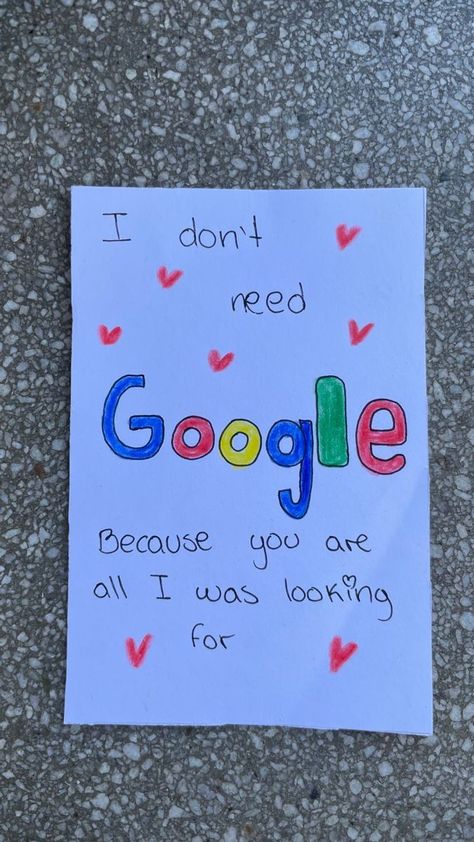 I don't
need
Google
Because you are
all I was looking
for